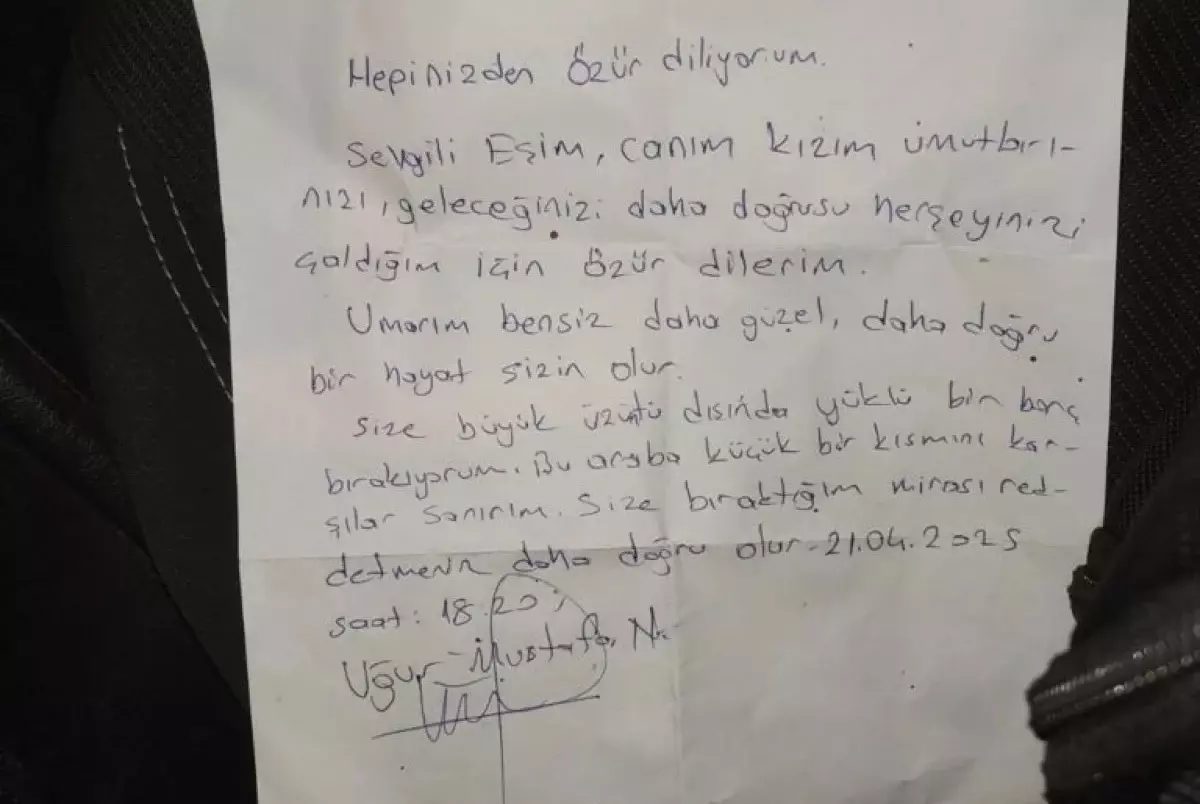 Hepinizden özür diliyorum.
Sevgili Eşim, canım kızım ümutbırı-
nızı, geleceğinizi daha doğrusu herşeyinizi
çaldığım için özür dilerim.
Umarım bensiz daha güzel, daha doğru
bir hayat sizin olur.
Size büyük üzüntü dışında yüklü bir borç
bırakıyorum. Bu araba küçük bir kısmını kar-
şılar sanırım. Size bıraktığım mirası red-
detmeniz daha doğru olur. 21.04.2025
saat: 18.20
Uğur Mustafa N.